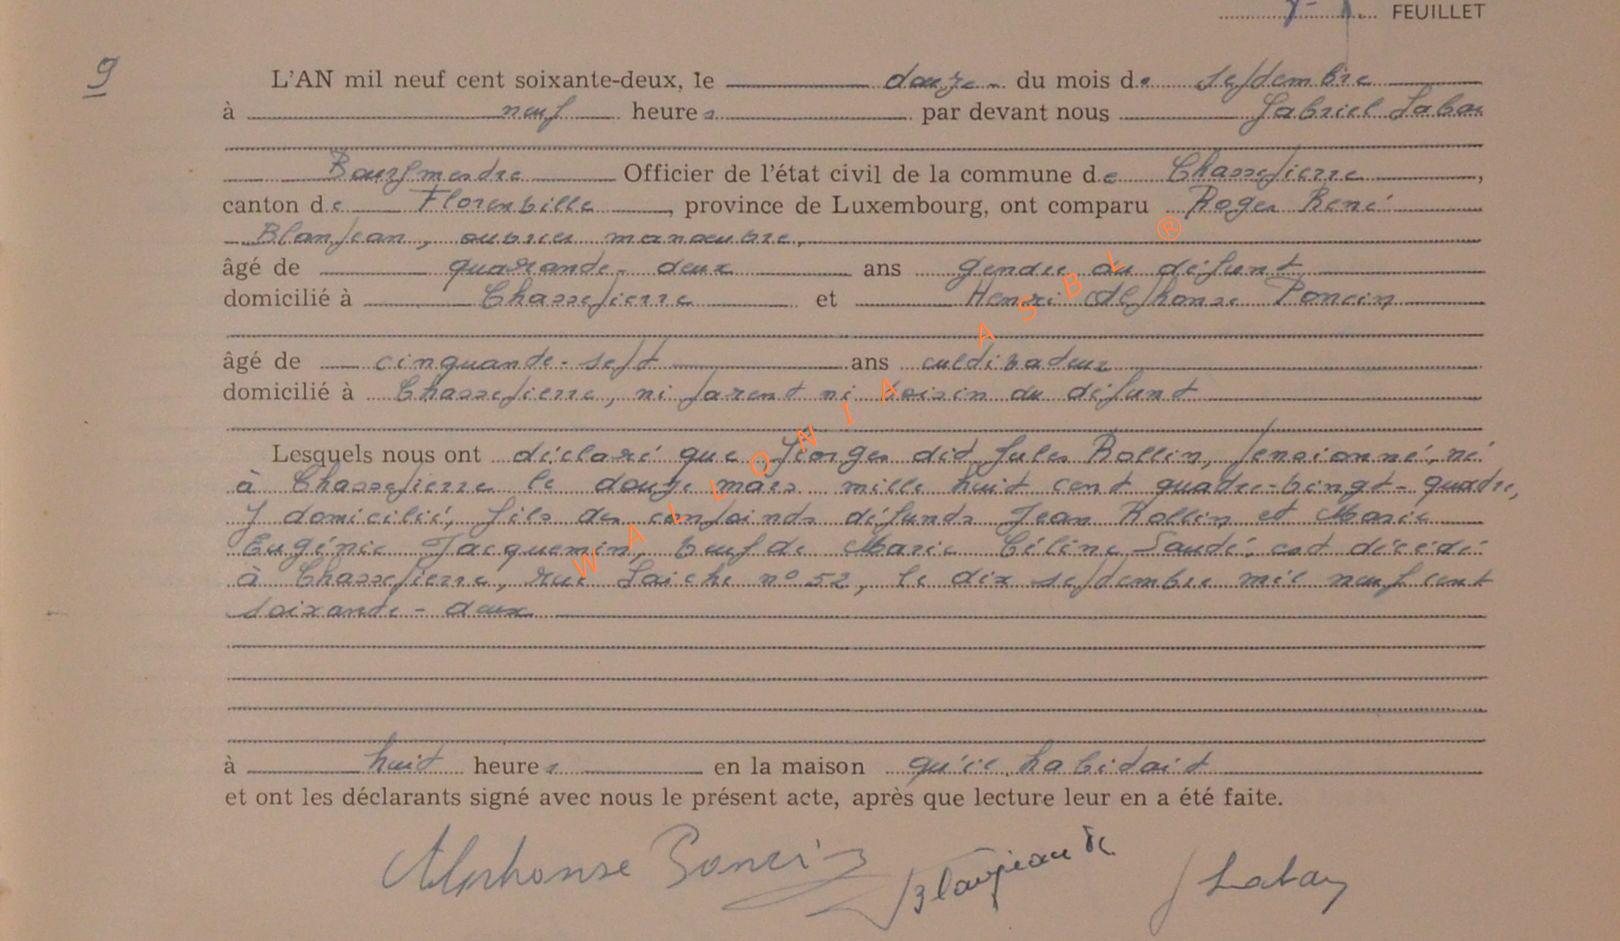 FEUILLET
9
L'AN mil neuf cent soixante-deux, le douze du mois de septembre
à neuf heures par devant nous Gabriel
Bourgmestre Officier de l'état civil de la commune de Chassepierre,
canton de Florenville, province de Luxembourg, ont comparu Roger René
Blanjean, ouvrier manœuvre,
âgé de quarante-deux ans gendre du défunt
domicilié à Chassepierre et Henri Alphonse Poncin
âgé de cinquante-sept ans cultivateur
domicilié à Chassepierre, ni parent ni voisin du défunt
Lesquels nous ont déclaré que Georges dit Jules Rollin, pensionné, né
à Chassepierre le douze mars mille huit cent quatre-vingt-quatre,
y domicilié, fils des conjoints défunts Jean Rollin et Marie
Eugénie Jacquemin, veuf de Marie Céline Laudé, est décédé
à Chassepierre, rue Laiche n° 52, le dix septembre mil neuf cent
soixante-deux
à huit heures en la maison qu'il habitait
et ont les déclarants signé avec nous le présent acte, après que lecture leur en a été faite.
Alphonse Poncin Blanjean R
WALLONIA ASBL ®